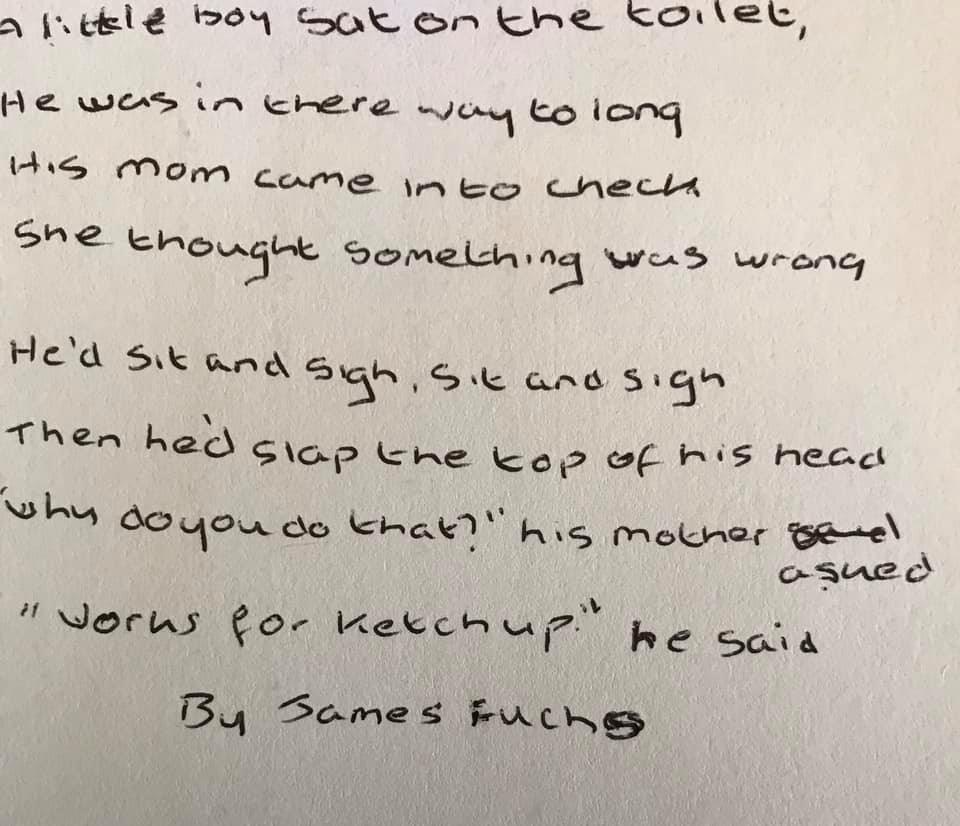 a little boy sat on the toilet,
He was in there way to long
His mom came in to check
She thought something was wrong
He'd sit and sigh, sit and sigh
Then he'd slap the top of his head
"why do you do that?" his mother
asked
"Works for ketchup." he said
By James Fuchs